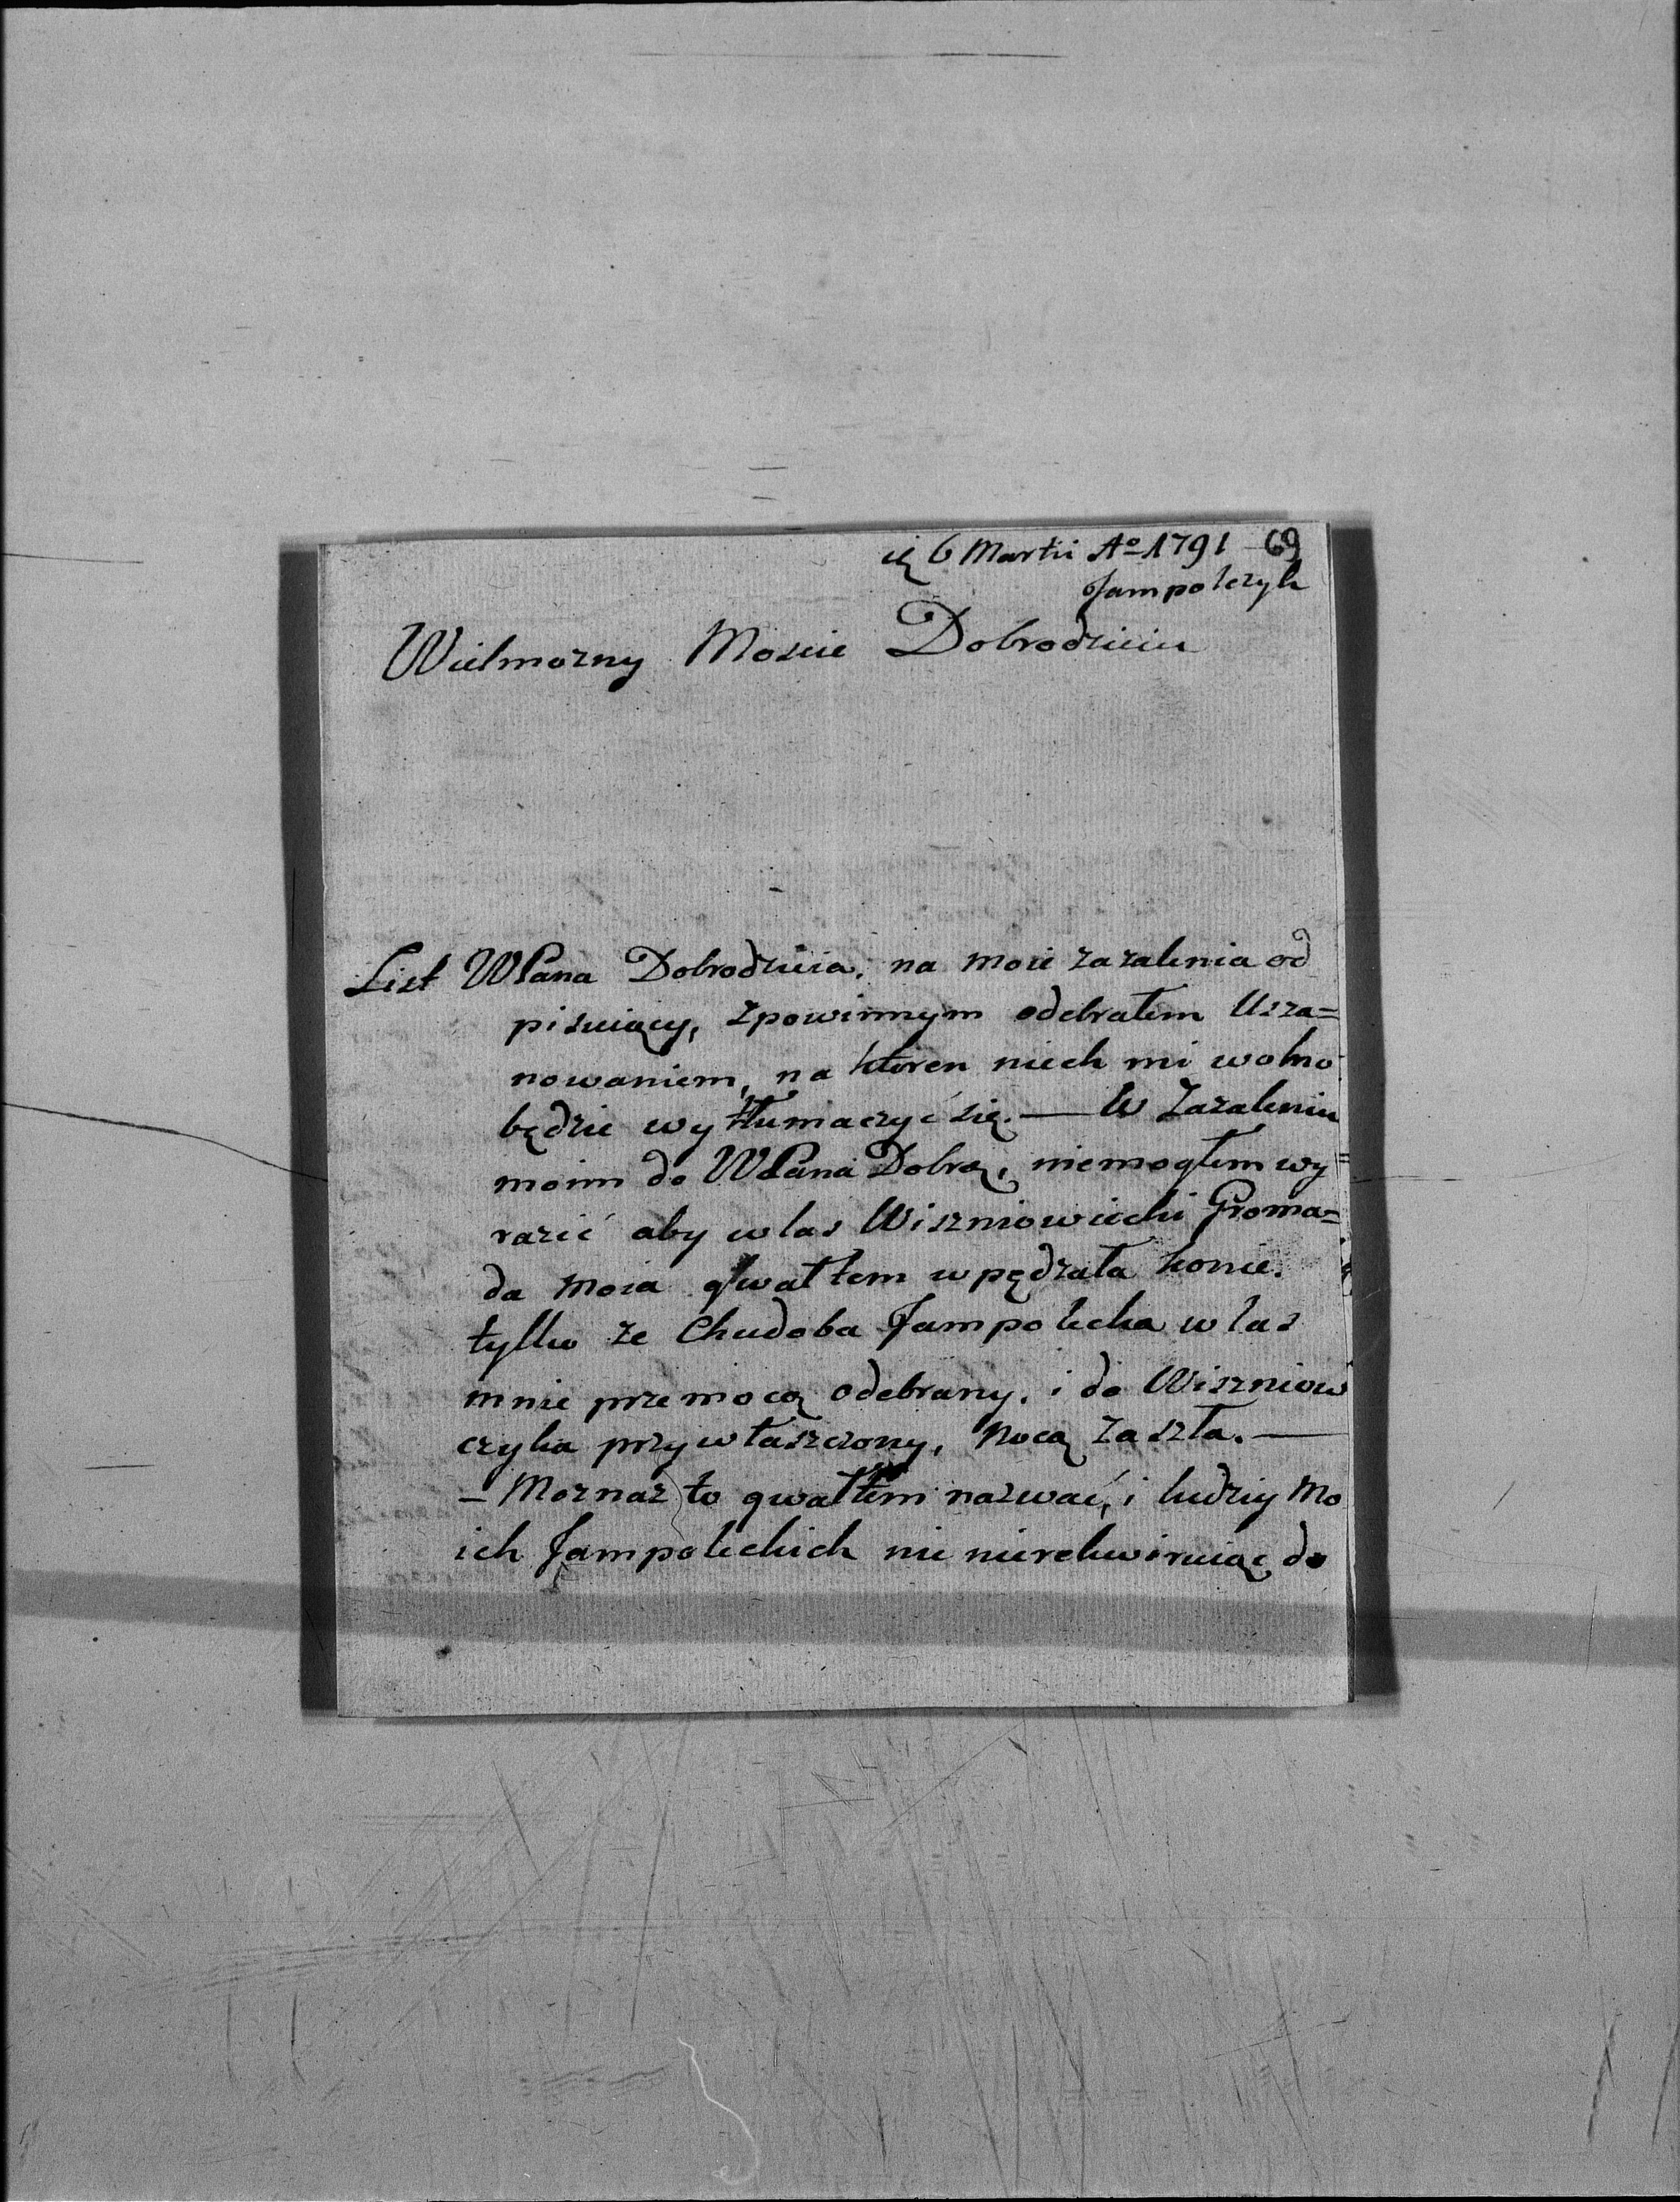 6 Martii Aº 1791 69
Jampolczyk
Wielmozny Moscie Dobrodzieiu
List WPana Dobrodzieia, na moie zazalenia od
pisuiący, zpowinnym odebrałem Usza=
nowaniem, na ktoren niech mi wolno
będzie wytłumaczyć się. — W Zazaleniu
moim do WPana Dobrą, niemogłem wy
razić aby w las Wiszniowiecki Groma=
da moia gwałtem wpędzała konie.
tylko ze Chudoba Jampolecka w las
mnie przemocą odebrany, i do Wiszniow
czyka przywłaszczony, Nocą Zaszła. —
– Moznaz to gwałtem nazwać, i ludziy Mo
ich Jampoleckich nie nierekwiruiąc do